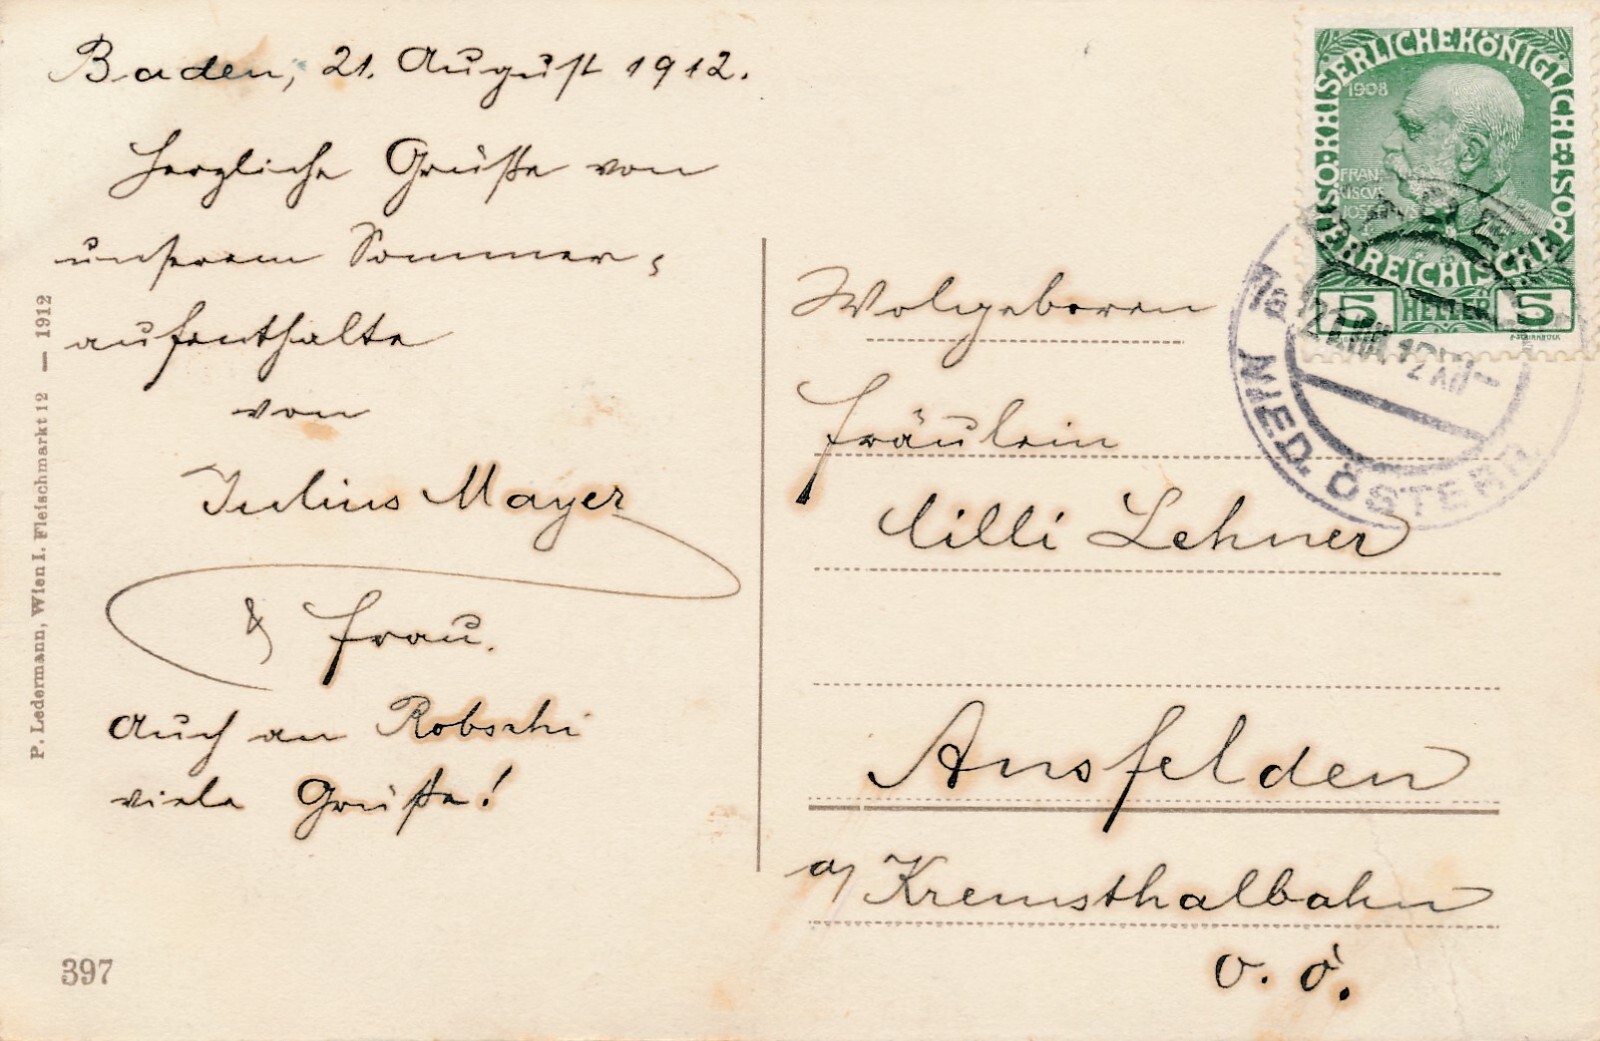 Baden, 21. August 1912.
Herzliche Grüße von
unserem Sommer-
aufenthalte
von
Julius Mayer
& Frau.
Auch an Robschi
viele Grüße!
P. Ledermann, Wien I. Fleischmarkt 12 — 1912
397
KAISERLICHEKÖNIGLICHE
ÖSTERREICHISCHE POST
1908
FRAN
CISCVS
JOSEPH I
5 HELLER 5
NIED. ÖSTERR.
Wolgeboren
Fräulein
Cilli Lehner
Ansfelden
a/ Kremsthalbahn
O. Ö.